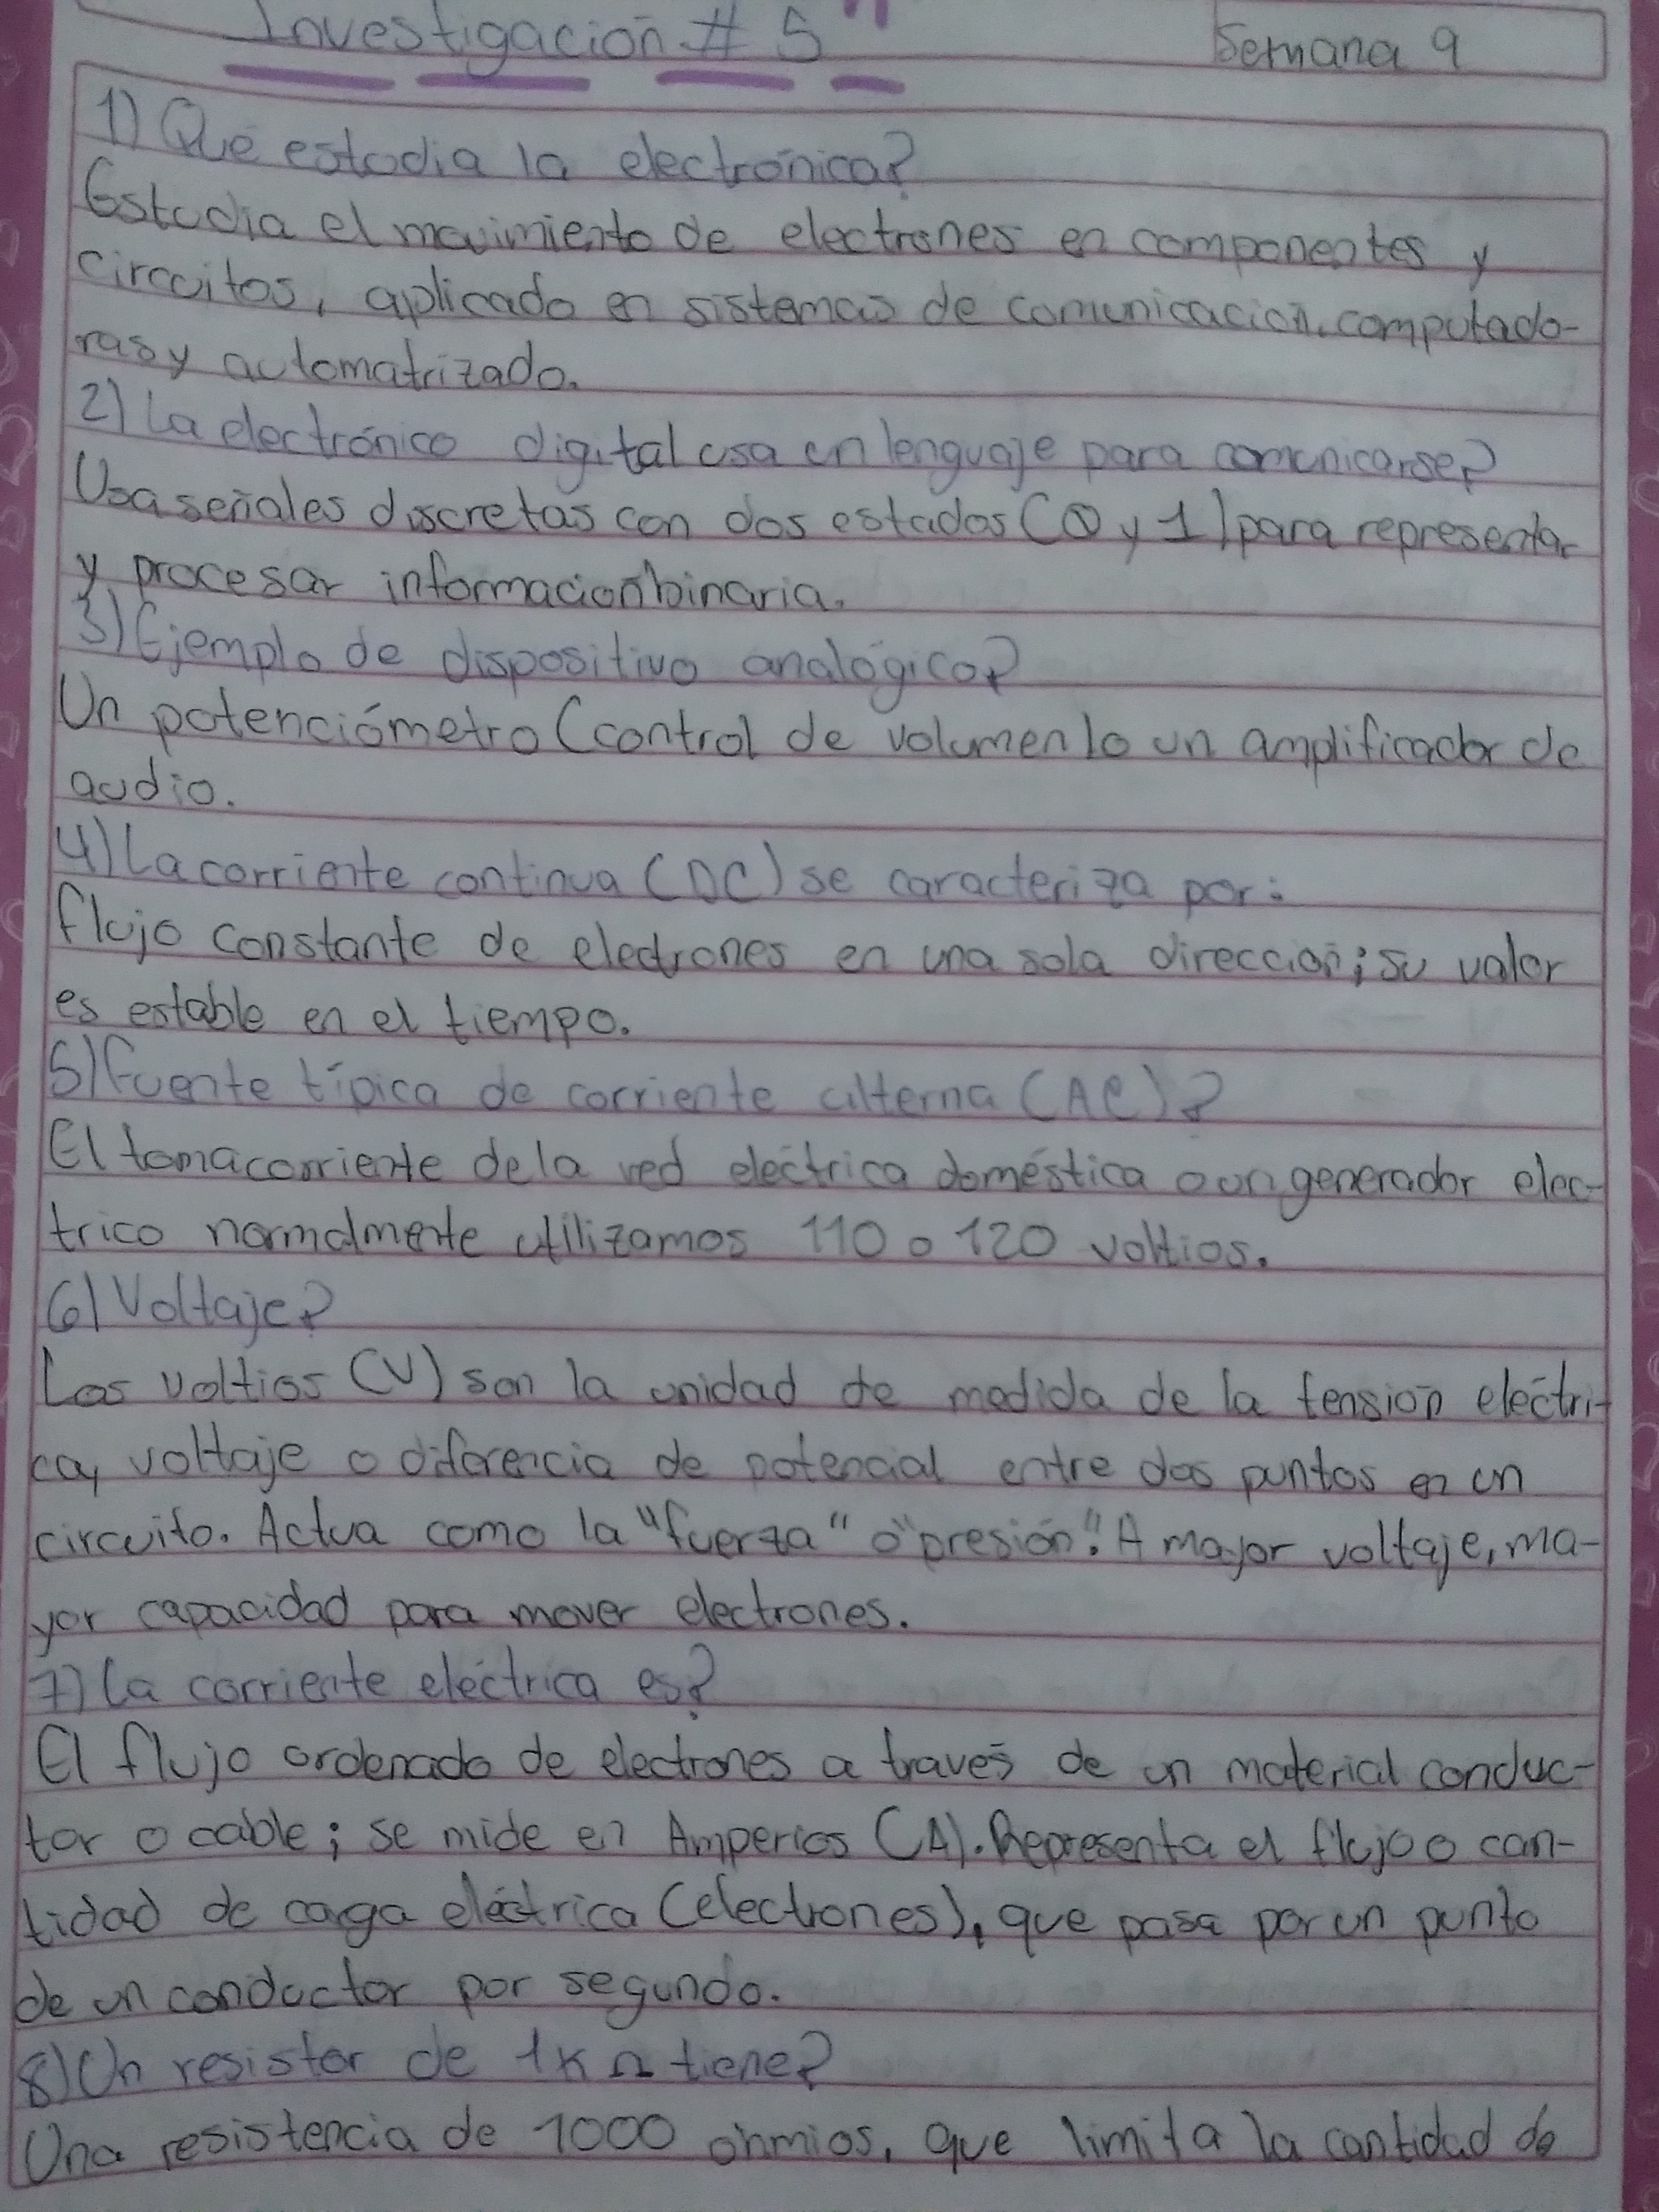 Investigación # 5
Semana 9
1) Qué estudia la electrónica?
Estudia el movimiento de electrones en componentes y
circuitos, aplicado en sistemas de comunicación, computado-
ras y automatrizado.
2) La electrónico digital usa un lenguaje para comunicarse?
Usa señales discretas con dos estados (0 y 1) para representar
y procesar información binaria.
3) Ejemplo de dispositivo analógico?
Un potenciómetro (control de volumen) o un amplificador de
audio.
4) La corriente continua (DC) se caracteriza por:
flujo constante de electrones en una sola dirección; su valor
es estable en el tiempo.
5) Fuente típica de corriente alterna (AC)?
El tomacorriente de la red eléctrica doméstica o un generador elec-
trico normalmente utilizamos 110 o 120 voltios.
6) Voltaje?
Los voltios (V) son la unidad de medida de la tensión eléctri-
ca, voltaje o diferencia de potencial entre dos puntos en un
circuito. Actua como la "fuerza" o "presión". A mayor voltaje, ma-
yor capacidad para mover electrones.
7) La corriente eléctrica es?
El flujo ordenado de electrones a través de un material conduc-
tor o cable; se mide en Amperios (A). Representa el flujo o can-
tidad de carga eléctrica (electrones), que pasa por un punto
de un conductor por segundo.
8) Un resistor de 1K Ω tiene?
Una resistencia de 1000 ohmios, que limita la cantidad de